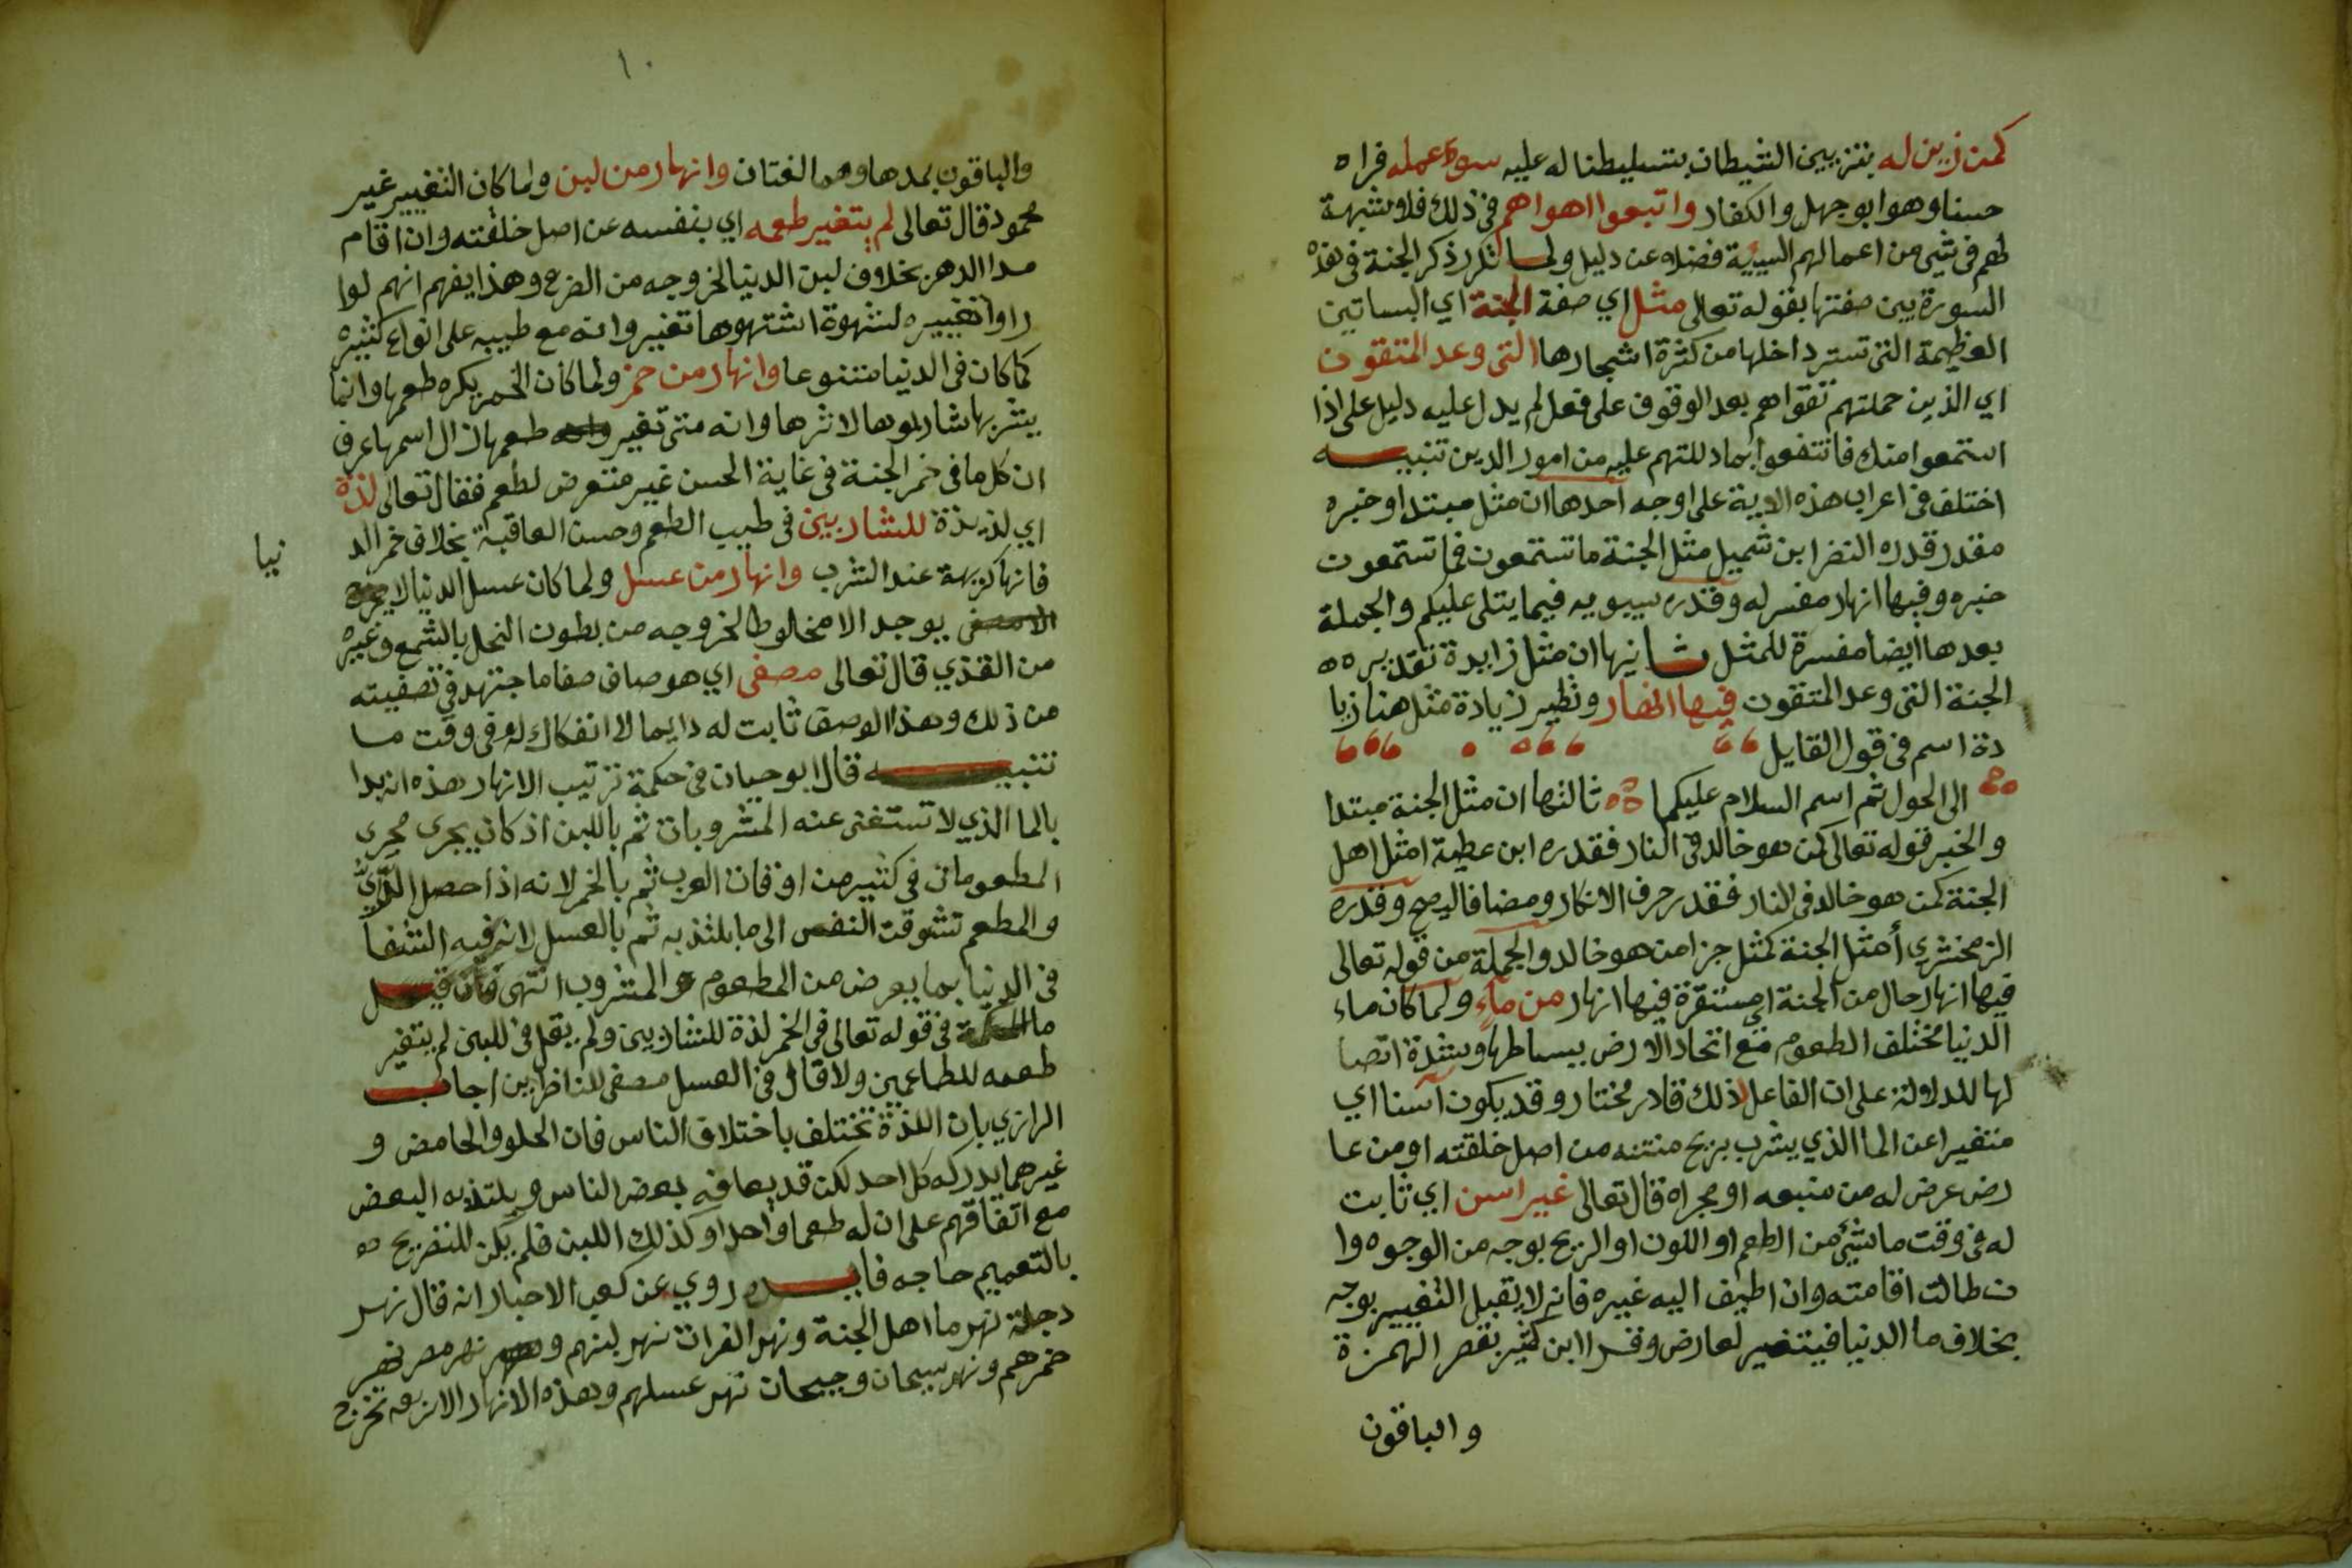 كمن زين له بتزيين الشيطان بتسليطنا له عليه سوء عمله فراه
حسنا وهو ابو جهل والكفار واتبعوا اهواهم في ذلك فلا شبهة
لهم في شي من اعمالهم السيية فضلا عن دليل ولما تكرر ذكر الجنة في هذه
السورة بين صفتها بقوله تعالى مثل اي صفة الجنة اي البساتين
العظيمة التي تستر داخلها من كثرة اشجارها التي وعد المتقون
اي الذين حملتهم تقواهم بعد الوقوف على فعل لم يدل عليه دليل على اذا
استمعوا منك فانتفعوا بما دللتهم عليه من امور الدين تنبيه
اختلف في اعراب هذه الاية على اوجه احدها ان مثل مبتدا وخبره
مقدر قدره النضر ابن شميل مثل الجنة ما تستمعون فما تستمعون
خبره وفيها انهار مفسر له وقدره سيبويه فيما يتلى عليكم والجملة
بعدها ايضا مفسرة للمثل ثانيها ان مثل زايدة تقديره
الجنة التي وعد المتقون فيها انهار ونظير زيادة مثل هنا زيا
دة اسم في قول القايل
الى الحول ثم اسم السلام عليكما ثالثها ان مثل الجنة مبتدا
والخبر قوله تعالى كمن هو خالد في النار فقدره ابن عطية امثل اهل
الجنة كمن هو خالد في النار فقدر حرف الانكار ومضافا ليصح وقدره
الزمخشري أمثل الجنة كمثل جزا من هو خالد والجملة من قوله تعالى
فيها انهار حال من الجنة اي مستقرة فيها انهار من ماء ولما كان ماء
الدنيا مختلف الطعوم مع اتحاد الارض ببساطها وشدة اتصا
لها للدلالة على ان الفاعل لذلك قادر مختار وقد يكون آسنا اي
متغيرا عن الما الذي يشرب بريح منتنه من اصل خلقته او من عا
رض عرض له من منبعه او مجراه قال تعالى غير اسن اي ثابت
له في وقت ما شيء من الطعم او اللون او الريح بوجه من الوجوه وا
ن طالت اقامته وان اضيف اليه غيره فانه لا يقبل التغيير بوجه
بخلاف ما الدنيا فيتغير لعارض وقرا ابن كثير بقصر الهمزة
والباقون
١٠
والباقون بمدها وهما لغتان وانهار من لبن ولما كان التغيير غير
محمود قال تعالى لم يتغير طعمه اي بنفسه عن اصل خلقته وان اقام
مدا الدهر بخلاف لبن الدنيا لخروجه من الضرع وهذا يفهم انهم لوا
راوا تغييره لشهوة اشتهوها تغير وانه مع طيبه على انواع كثيره
كما كان في الدنيا متنوعا وانهار من خمر ولما كان الخمر يكره طعمها وانما
يشربها شاربوها لاثرها وانه متى تغير طعمها زال اسمها عرف
ان كل ما في خمر الجنة في غاية الحسن غير متعرض لطعم فقال تعالى لذة
اي لذيذة للشاربين في طيب الطعم وحسن العاقبة بخلاف خمر الد
نيا
فانها كريهة عند الشرب وانهار من عسل ولما كان عسل الدنيا لا
يوجد الا مخلوطا لخروجه من بطون النحل بالشمع وغيره
من القذي قال تعالى مصفى اي هو صاف صفا ما اجتهد في تصفيته
من ذلك وهذا الوصف ثابت له دايما لا انفكاك له في وقت ما
تنبيه قال ابو حيان في حكمة ترتيب الانهار هذه انه بدا
بالما الذي لا تستغني عنه المشروبات ثم باللبن اذ كان يجرى مجرى
المطعومات في كثير من اوقات العرب ثم بالخمر لانه اذا حصل الرّيُّ
والمطعم تشوقت النفس الى ما يلتذ به ثم بالعسل لانه فيه الشفا
في الدنيا بما يعرض من المطعوم والمشروب انتهى فان قيل
ما الحكمة في قوله تعالى في الخمر لذة للشاربين ولم يقل في اللبن لم يتغير
طعمه للطاعمين ولا قال في العسل مصفى للناظرين اجاب
الرازي بان اللذة تختلف باختلاف الناس فان الحلو والحامض و
غيرهما يدركه كل احد لكن قد يعافه بعض الناس ويلتذ به البعض
مع اتفاقهم على ان له طعما واحدا وكذلك اللبن فلم يكن للتصريح
بالتعميم حاجه فايده روي عن كعب الاحبار انه قال نهر
دجلة نهر ما اهل الجنة ونهر الفرات نهر لبنهم ونهر مصر نهر
خمرهم ونهر سيحان وجيحان نهر عسلهم وهذه الانهار الاربعه تخرج